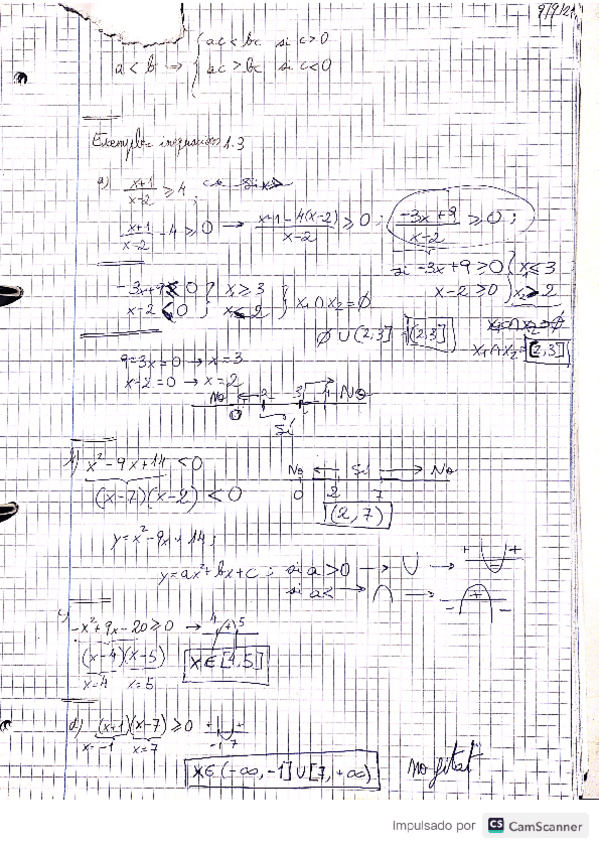 9/9/21
ac < bc si c > 0
a < b ⇒ { ac > bc si c < 0
1.3
a) x+1/x-2 ≥ 4;
x+1/x-2 - 4 ≥ 0 → x+1-4(x-2)/x-2 ≥ 0; -3x+9/x-2 ≥ 0;
si -3x+9 ≥ 0 } x₁ ≤ 3
x-2 ≥ 0 } x₂ > 2
x ≥ 3
x-2 < 0; x < 2 } x₁ ∩ x₂ = ∅
∅ ∪ (2,3] = (2,3]
x₁ ∩ x₂ = (2,3]
9-3x=0 → x=3
x-2=0 → x=2
No 2 3 4 No
0 Sí
b) x²-9x+14 < 0
(x-7)(x-2) < 0
No ← Sí → No
0 2 7
(2,7)
y=x²-9x+14;
y=ax²+bx+c; si a>0 → ∪ → + - +
si a< → ∩ → - + -
c) -x²+9x-20 ≥ 0 → 4 (+) 5
(x-4)(x-5)
x=4 x=5
x∈[4,5]
d) (x+1)(x-7) ≥ 0 + - +
x=-1 x=7 -1 7
x∈(-∞,-1]∪[7,+∞)
Impulsado por CS CamScanner